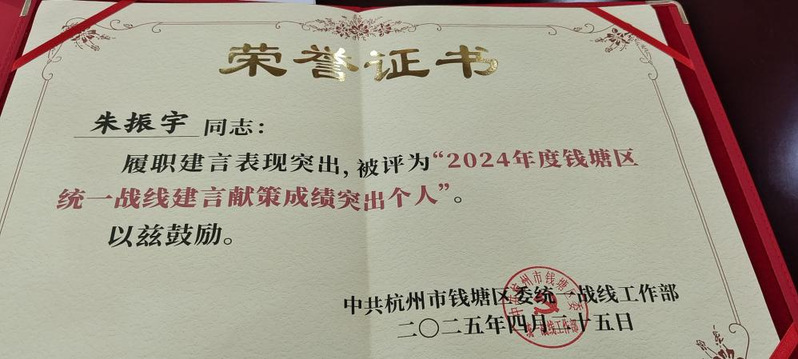 荣誉证书
朱振宇 同志：
履职建言表现突出，被评为“2024年度钱塘区
统一战线建言献策成绩突出个人”。
以兹鼓励。
中共杭州市钱塘区委统一战线工作部
二〇二五年四月二十五日